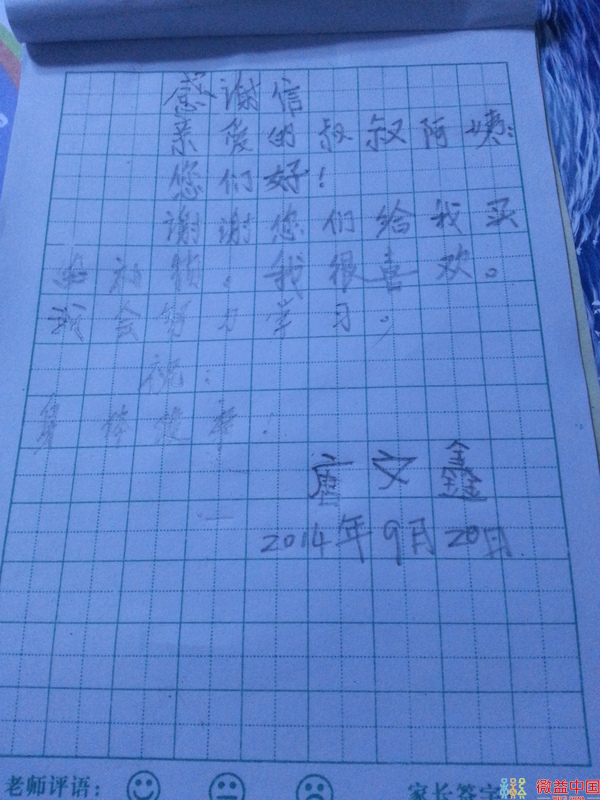 感谢信
亲爱的叔叔阿姨:
您们好!
谢谢您们给我买
我很喜欢。
我会努力学习。
祝:
身体健康!
唐文鑫
2014年9月20日
老师评语:
家长签字
微益中国